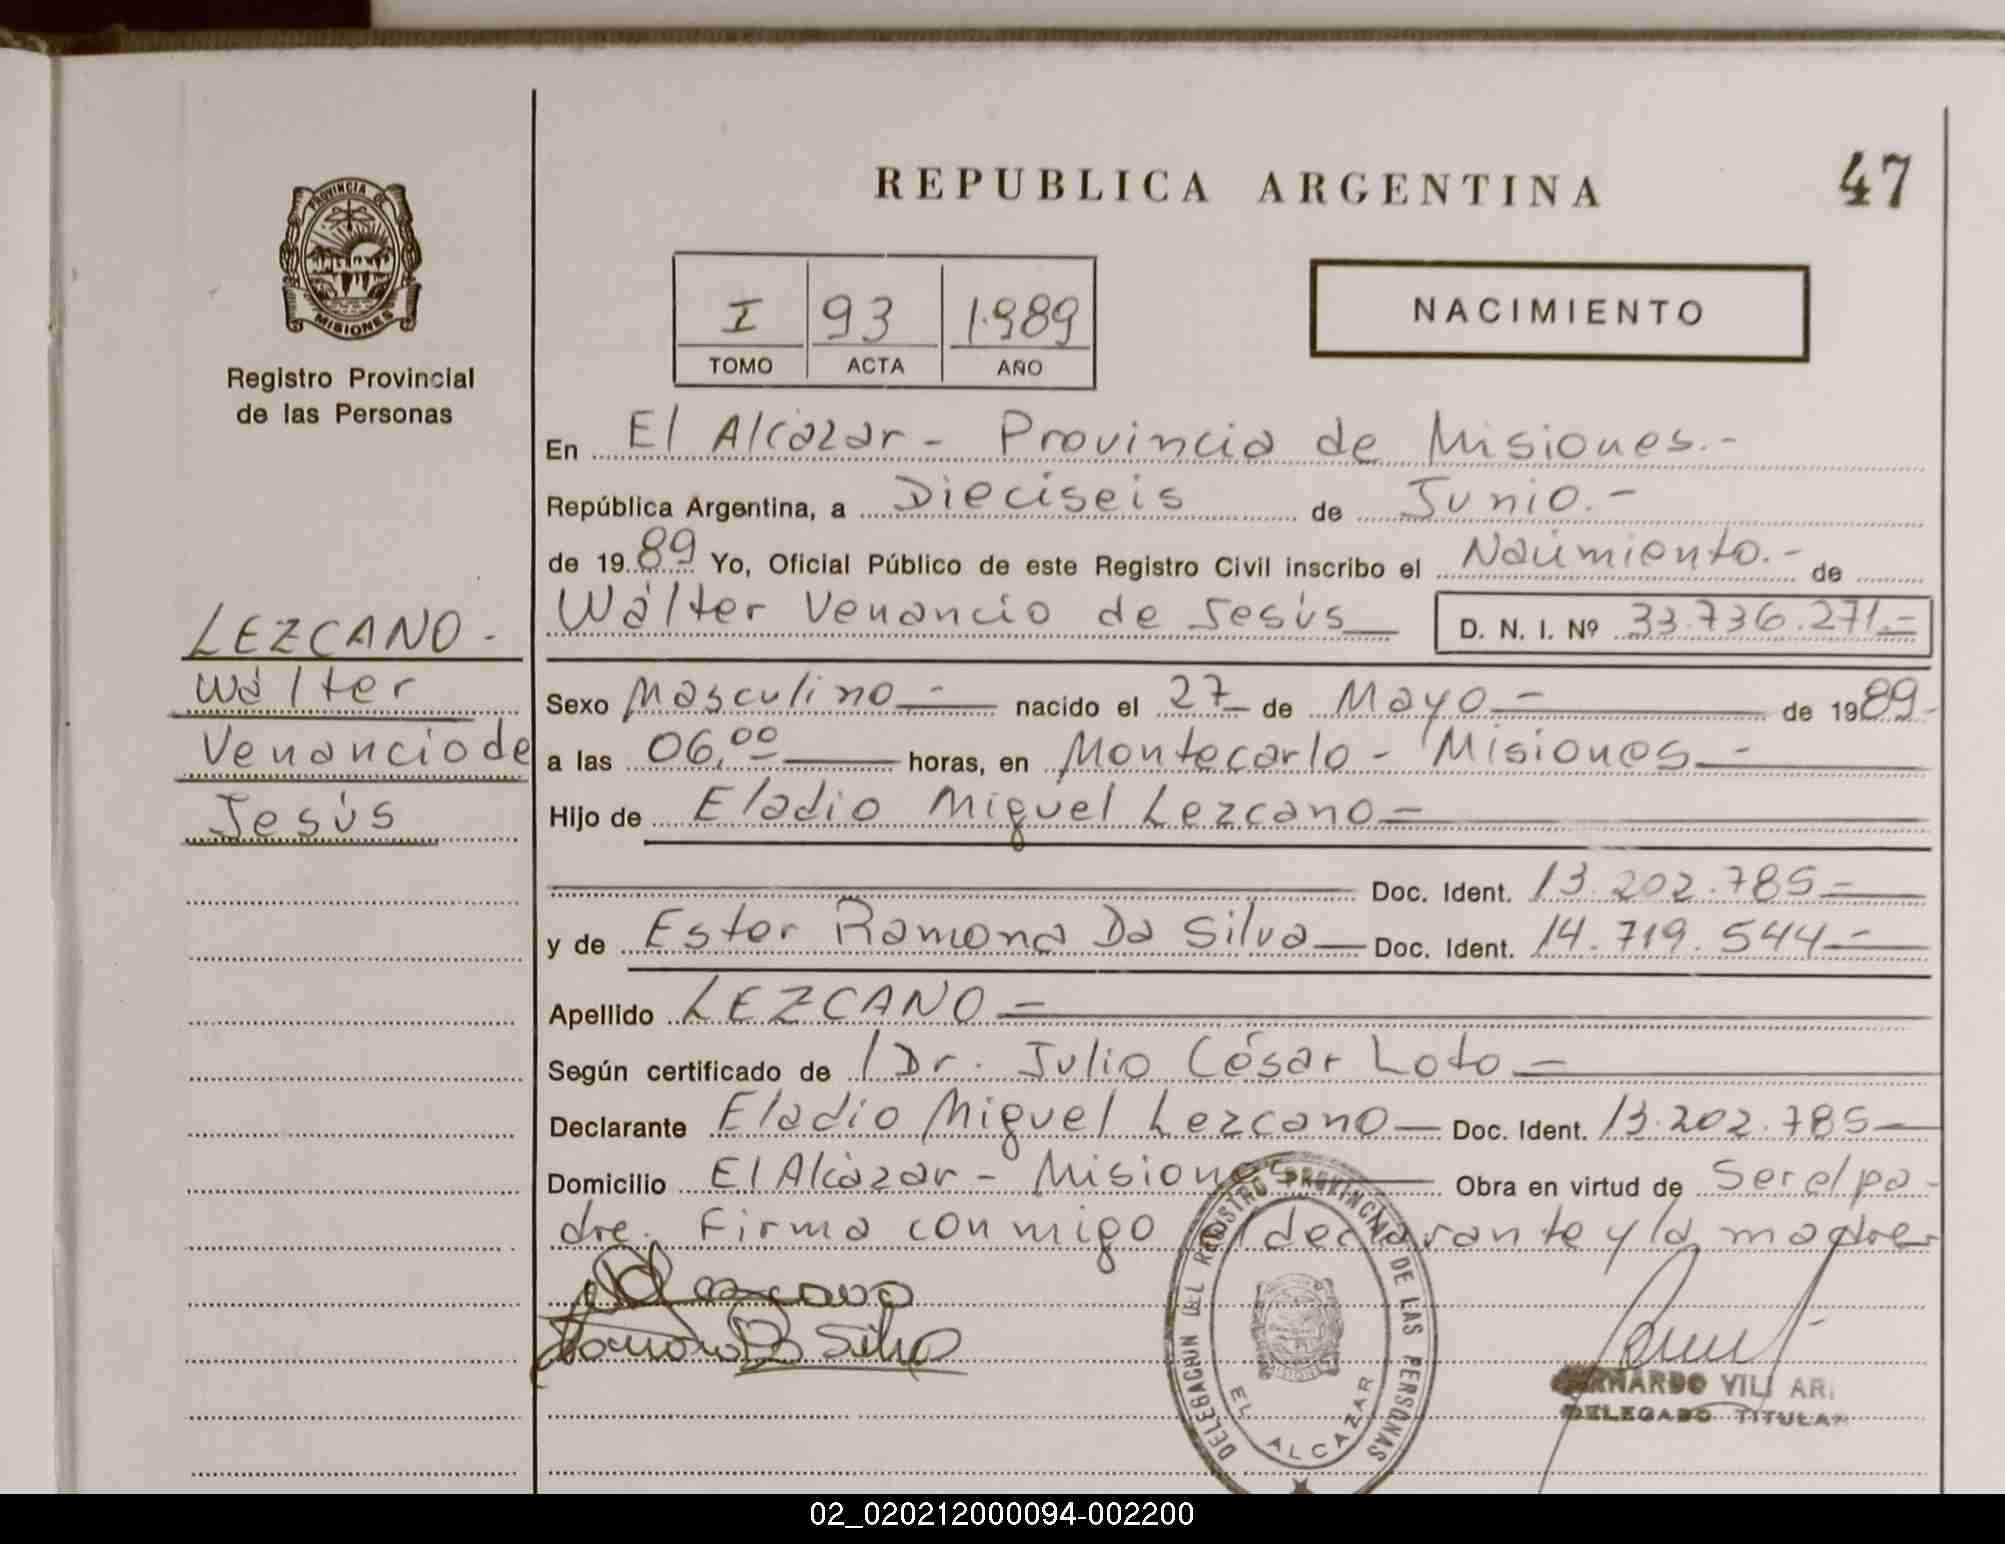 REPUBLICA ARGENTINA
47
PROVINCIA DE
MISIONES
Registro Provincial
de las Personas
I 93 1.989
TOMO ACTA AÑO
NACIMIENTO
En El Alcázar - Provincia de Misiones.-
República Argentina, a Dieciseis de Junio.-
de 1989 Yo, Oficial Público de este Registro Civil inscribo el Nacimiento.- de
Wálter Venancio de Jesús D. N. I. Nº 33.736.271.-
LEZCANO -
Wálter
Venancio de
Jesús
Sexo Masculino - nacido el 27 de Mayo - de 1989-
a las 06,00 horas, en Montecarlo - Misiones -
Hijo de Eladio Miguel Lezcano -
Doc. Ident. 13.202.785 -
y de Ester Ramona Da Silva - Doc. Ident. 14.719.544 -
Apellido LEZCANO -
Según certificado de Dr. Julio César Loto -
Declarante Eladio Miguel Lezcano - Doc. Ident. 13.202.785 -
Domicilio El Alcázar - Misiones Obra en virtud de Ser el pa-
dre. Firma conmigo el declarante y la madre
DELEGACION DEL REGISTRO PROVINCIAL DE LAS PERSONAS
EL ALCAZAR
DELEGADO TITULAR
02_020212000094-002200